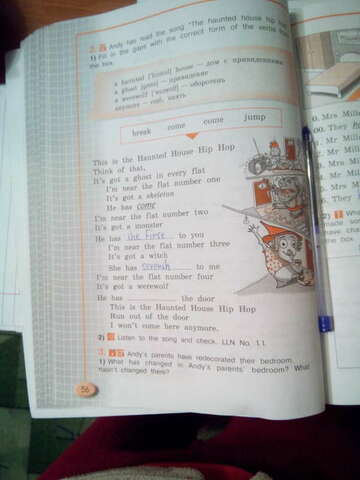 2. Andy has read the song "The haunted house hip hop
1) Fill in the gaps with the correct form of the verbs from
the box.
a haunted ['hɔntid] house — дом с привидениями
a ghost [gəust] — привидение
a werewolf ['wɛəwulf] — оборотень
anymore — ещё, опять
break come come jump
This is the Haunted House Hip Hop
Think of that,
It's got a ghost in every flat
I'm near the flat number one
It's got a skeleton
He has come
I'm near the flat number two
It's got a monster
He has to you
I'm near the flat number three
It's got a witch
She has to me
I'm near the flat number four
It's got a werewolf
He has ________ the door
This is the Haunted House Hip Hop
Run out of the door
I won't come here anymore.
2) Listen to the song and check. LLN No. 11.
3. Andy's parents have redecorated their bedroom.
1) What has changed in Andy's parents' bedroom? What
hasn't changed there?
56
0. Mrs Mill
00. They
Mr Mill
Mr. Mill
Mrs Mill
Mrs Mill
They
2)
made
have cha
the box